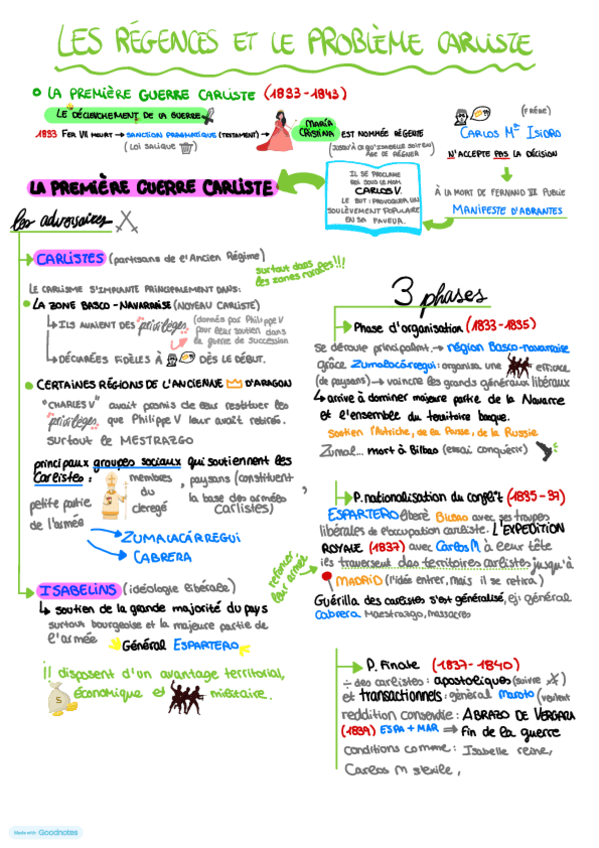 LES RÉGENCES ET LE PROBLÈME CARLISTE
LA PREMIÈRE GUERRE CARLISTE (1833-1843)
LE DÉCLENCHEMENT DE LA GUERRE
1833 FER VII MEURT → SANCTION PRAGMATIQUE (TESTAMENT) →
(LOI SALIQUE)
MARÍA CRISTINA EST NOMMÉE RÉGENTE
(JUSQU'À CE QU'ISABELLE SOIT EN ÂGE DE RÉGNER)
(FRÈRE)
CARLOS Mª ISIDRO
N'ACCEPTE PAS LA DÉCISION
À LA MORT DE FERNAND VII PUBLIE
MANIFESTE D'ABRANTES
IL SE PROCLAME
ROI SOUS LE NOM
CARLOS V.
LE BUT: PROVOQUER UN
SOULÈVEMENT POPULAIRE
EN SA FAVEUR.
LA PREMIÈRE GUERRE CARLISTE
les adversaires
CARLISTES (partisans de l'Ancien Régime)
surtout dans
les zones rurales!!!
LE CARLISME S'IMPLANTE PRINCIPALEMENT DANS:
LA ZONE BASCO-NAVARRAISE (NOYEAU CARLISTE)
ILS AVAIENT DES "privilèges" (donnés par Philippe V
pour leur soutien dans
la guerre de succession
DÉCLARÉES FIDÈLES À DÈS LE DÉBUT.
CERTAINES RÉGIONS DE L'ANCIENNE D'ARAGON
"CHARLES V" avait promis de leur restituer les
privilèges que Philippe V leur avait retirés.
surtout le MESTRAZGO
principaux groupes sociaux qui soutiennent les
Carlistes: membres du cleregé, paysans (constituent
la base des armées carlistes),
petite partie
de l'armée
ZUMALACÁRREGUI
CABRERA
ISABELINS (idéologie libérale)
soutien de la grande majorité du pays
surtout bourgeoise et la majeure partie de
l'armée
Général ESPARTERO
il disposent d'un avantage territorial,
économique et militaire.
3 phases
Phase d'organisation (1833-1835)
se déroule principalmt. → région Basco-navarraise
grâce Zumalacárregui: organisa une efficace
(de paysans) → vaincre les grands généraux libéraux
arrive à dominer majeure partie de la Navarre
et l'ensemble du territoire basque.
Soutien l'Autriche, de la Prusse, de la Russie
Zumal... mort à Bilbao (essai conquérir)
P. nationalisation du conflit (1835-37)
ESPARTERO libère Bilbao avec ses troupes
libérales de l'occupation carliste. L'EXPEDITION
ROYALE (1837) avec Carlos M à leur tête
ils traversent des territoires carlistes jusqu'à
renforcer
leur armée
MADRID (l'idée entrer, mais il se retira)
Guérilla des carlistes s'est généralisé, ej: général
Cabrera Maestrazgo, massacres
P. Finale (1837-1840)
÷ des carlistes: apostoliques (suivre)
et transactionnels: général Maroto (veulent
reddition consentie: ABRAZO DE VERGARA
(1839) ESPA + MAR ⇒ Fin de la guerre
conditions comme: Isabelle reine,
Carlos M s'exile,
Made with Goodnotes